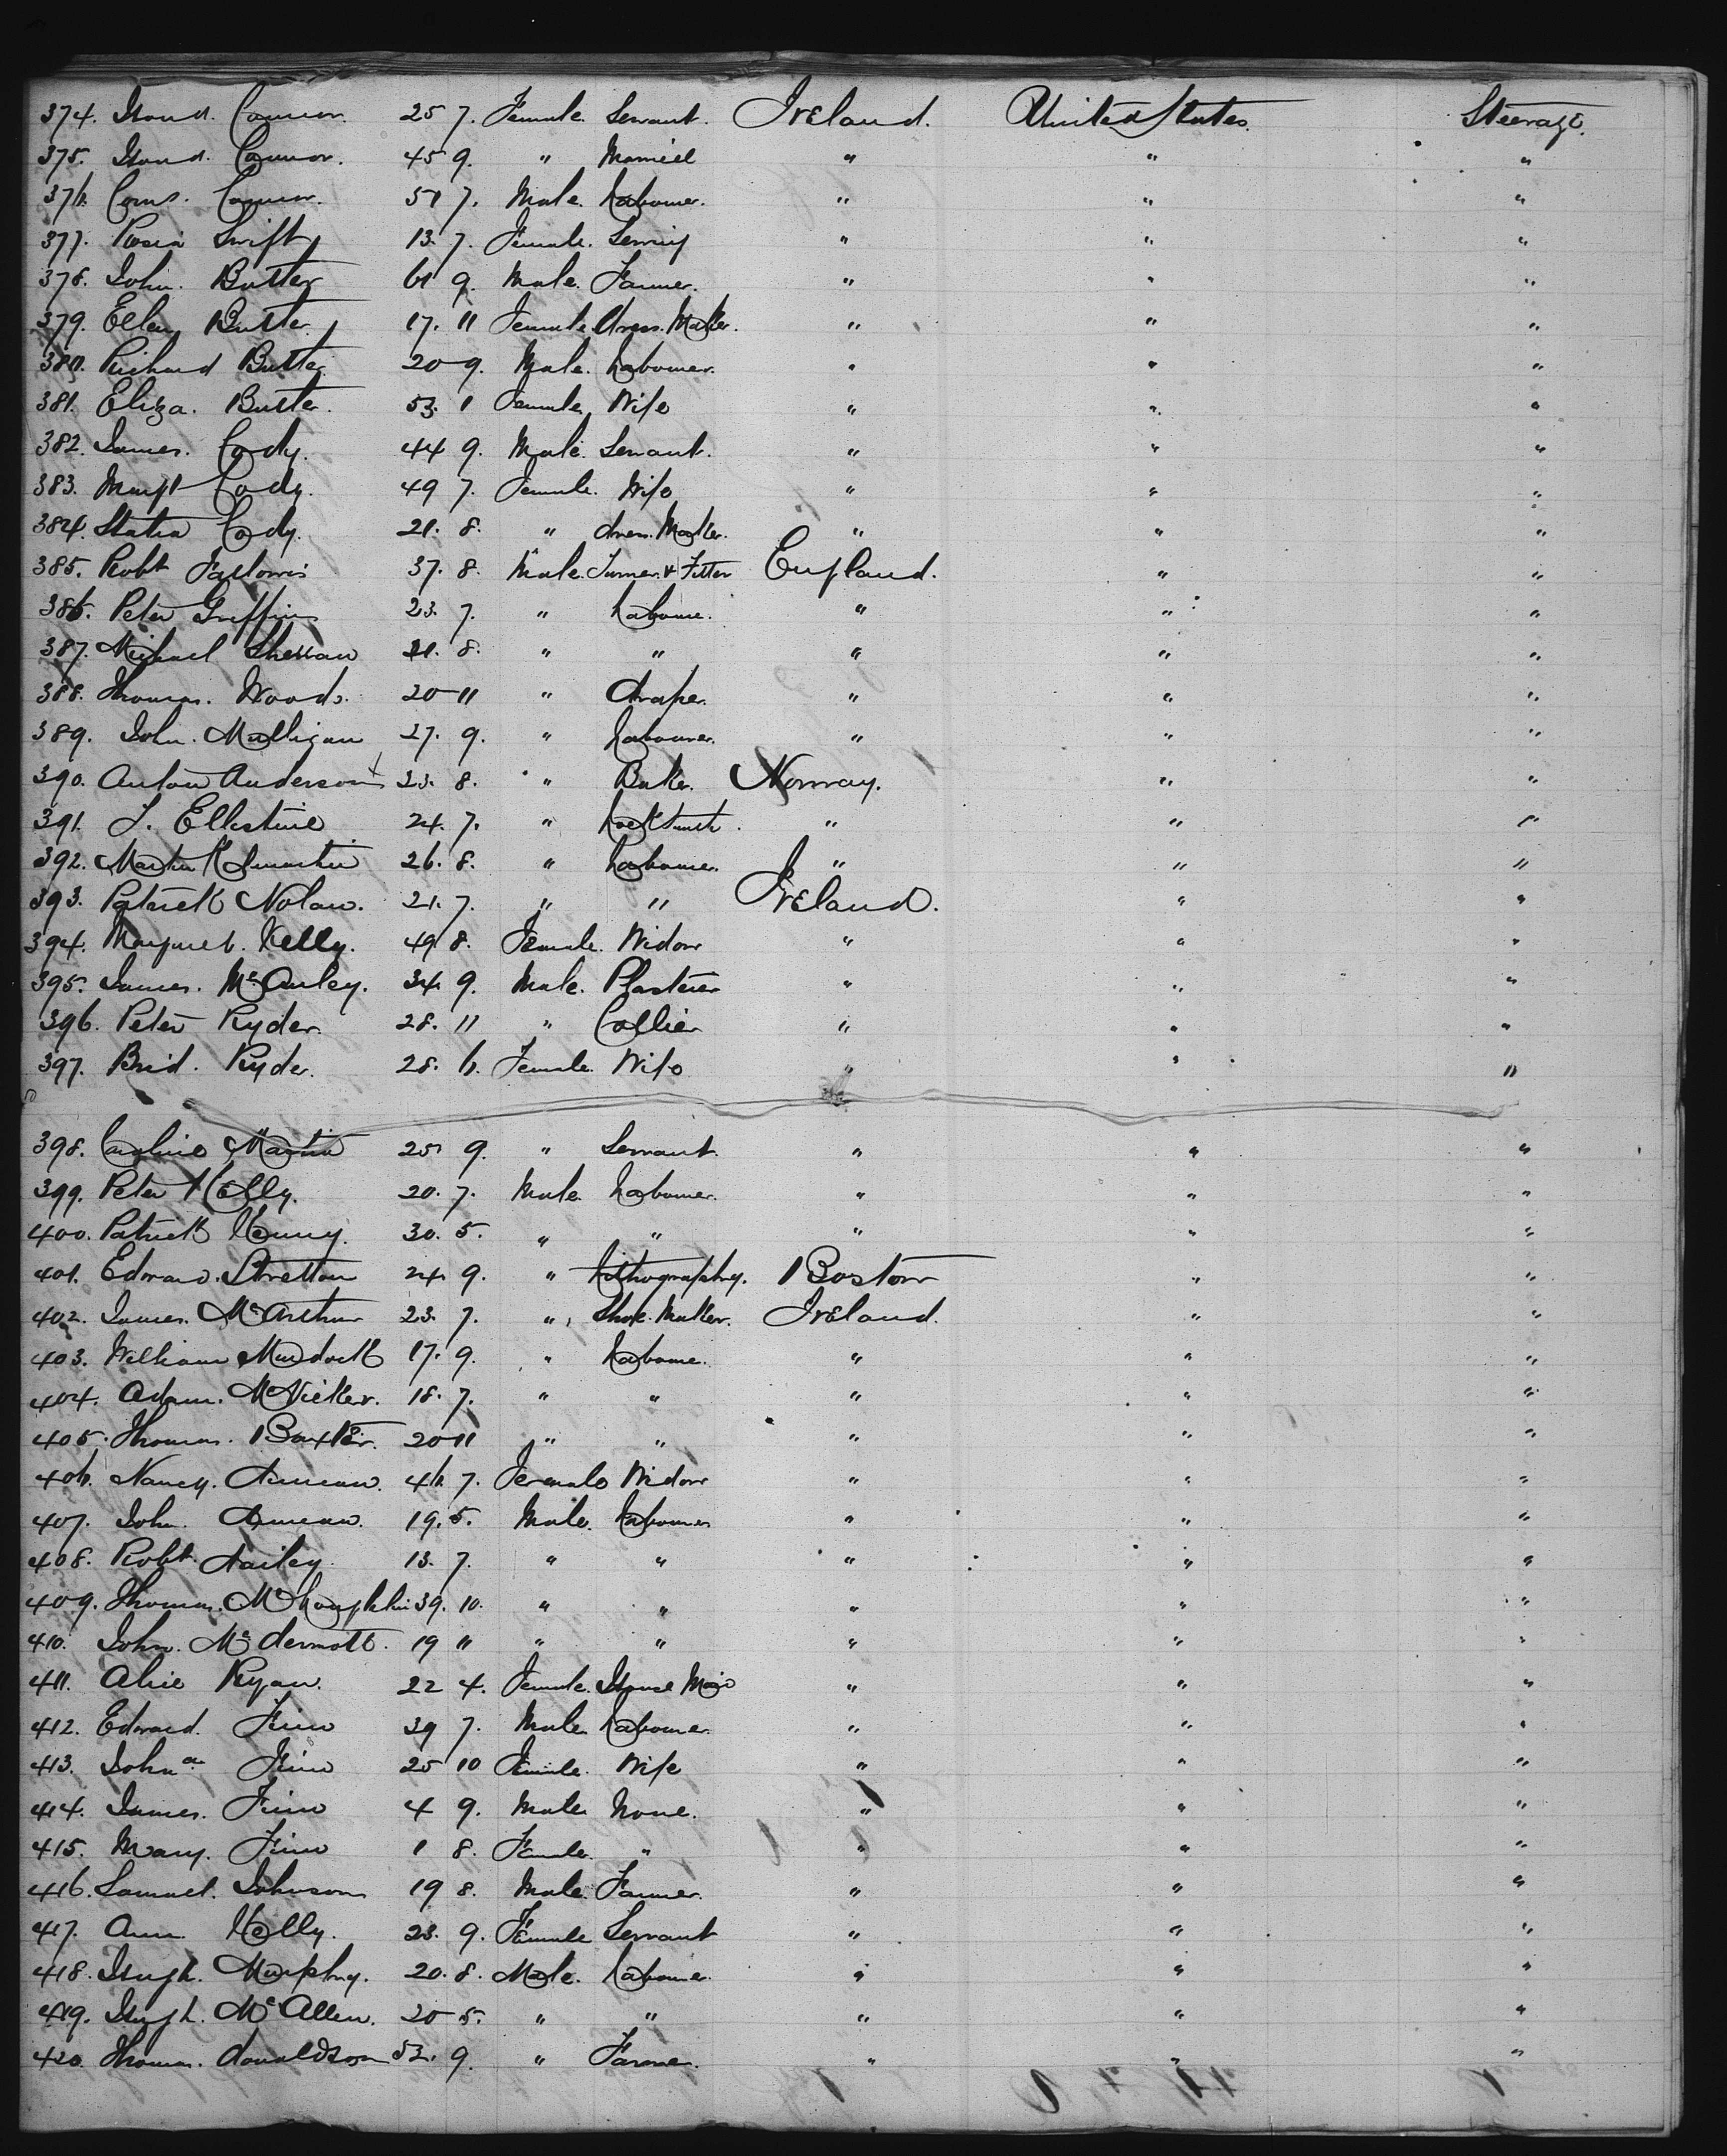 374. Hond. Connor. 25 7. Female. Servant. Ireland. United States. Steerage.
375. Hond. Connor. 45 9. " Married " " "
376. Corns. Connor. 51 7. Male. Labourer. " " "
377. Rosia Swift 13. 7. Female. Serving " " "
378. John. Butler 61 9. Male. Farmer. " " "
379. Ellen Butler 17. 11 Female dress. Maker. " " "
380. Richard Butler 20 9. Male. Labourer. " " "
381. Eliza. Butler. 53. 1 Female Wife " " "
382. James. Cody. 44 9. Male. Servant. " " "
383. Margt Cody. 49 7. Female. Wife " " "
384. Statia Cody. 21. 8. " dress. Maker. " " "
385. Robt 37. 8. Male. Turner & Fitter England. " "
386. Peter Griffin 23. 7. " Labourer. " " "
387. Michael 21. 8. " " " " "
388. Thomas. Woods. 20 11 " draper. " " "
389. John. Mulligan 27. 9. " Labourer. " " "
390. Anton Anderson 23. 8. " Baker. Norway. " "
391. J. Ellestine 24. 7. " Lock Smith. " " "
392. Martin 26. 8. " Labourer. " " "
393. Patrick Nolan. 21. 7. " " Ireland. " "
394. Margaret. Kelly. 49 8. Female. Widow " " "
395. James. McAuley. 34. 9. Male. Plasterer " " "
396. Peter Ryder. 28. 11 " Collier " " "
397. Brid. Ryder. 28. 6. Female. Wife " " "
398. Caroline Martin 25 9. " Servant. " " "
399. Peter Kelly. 20. 7. Male. Labourer. " " "
400. Patrick Kenny. 30. 5. " " " " "
401. Edward. Stretton 24. 9. " Lithography. Boston " "
402. James. McArthur 23. 7. " Shoe. Maker. Ireland. " "
403. William Murdock 17. 9. " Labourer. " " "
404. Adam. McVicker. 18. 7. " " " " "
405. Thomas. Baxter. 20 11 " " " " "
406. Nancy. duncan. 46. 7. Female Widow " " "
407. John. duncan. 19. 5. Male. Labourer " " "
408. Robt. dailey. 13. 7. " " " " "
409. Thomas. McLoughlin 39. 10. " " " " "
410. John. Mcdermott. 19 11 " " " " "
411. Alice Ryan. 22 4. Female. House Maid " " "
412. Edward. Finn 39 7. Male Labourer. " " "
413. Johna Finn 25 10 Female. Wife " " "
414. James. Finn 4 9. Male None. " " "
415. Mary. Finn 1 8. Female. " " " "
416. Samuel. Johnson 19 8. Male. Farmer. " " "
417. Ann Kelly. 23. 9. Female Servant " " "
418. Hugh. Murphy. 20. 8. Male. Labourer. " " "
419. Hugh. McAllen. 20 5. " " " " "
420. Thomas. donaldson 52. 9. " Farmer. " " "